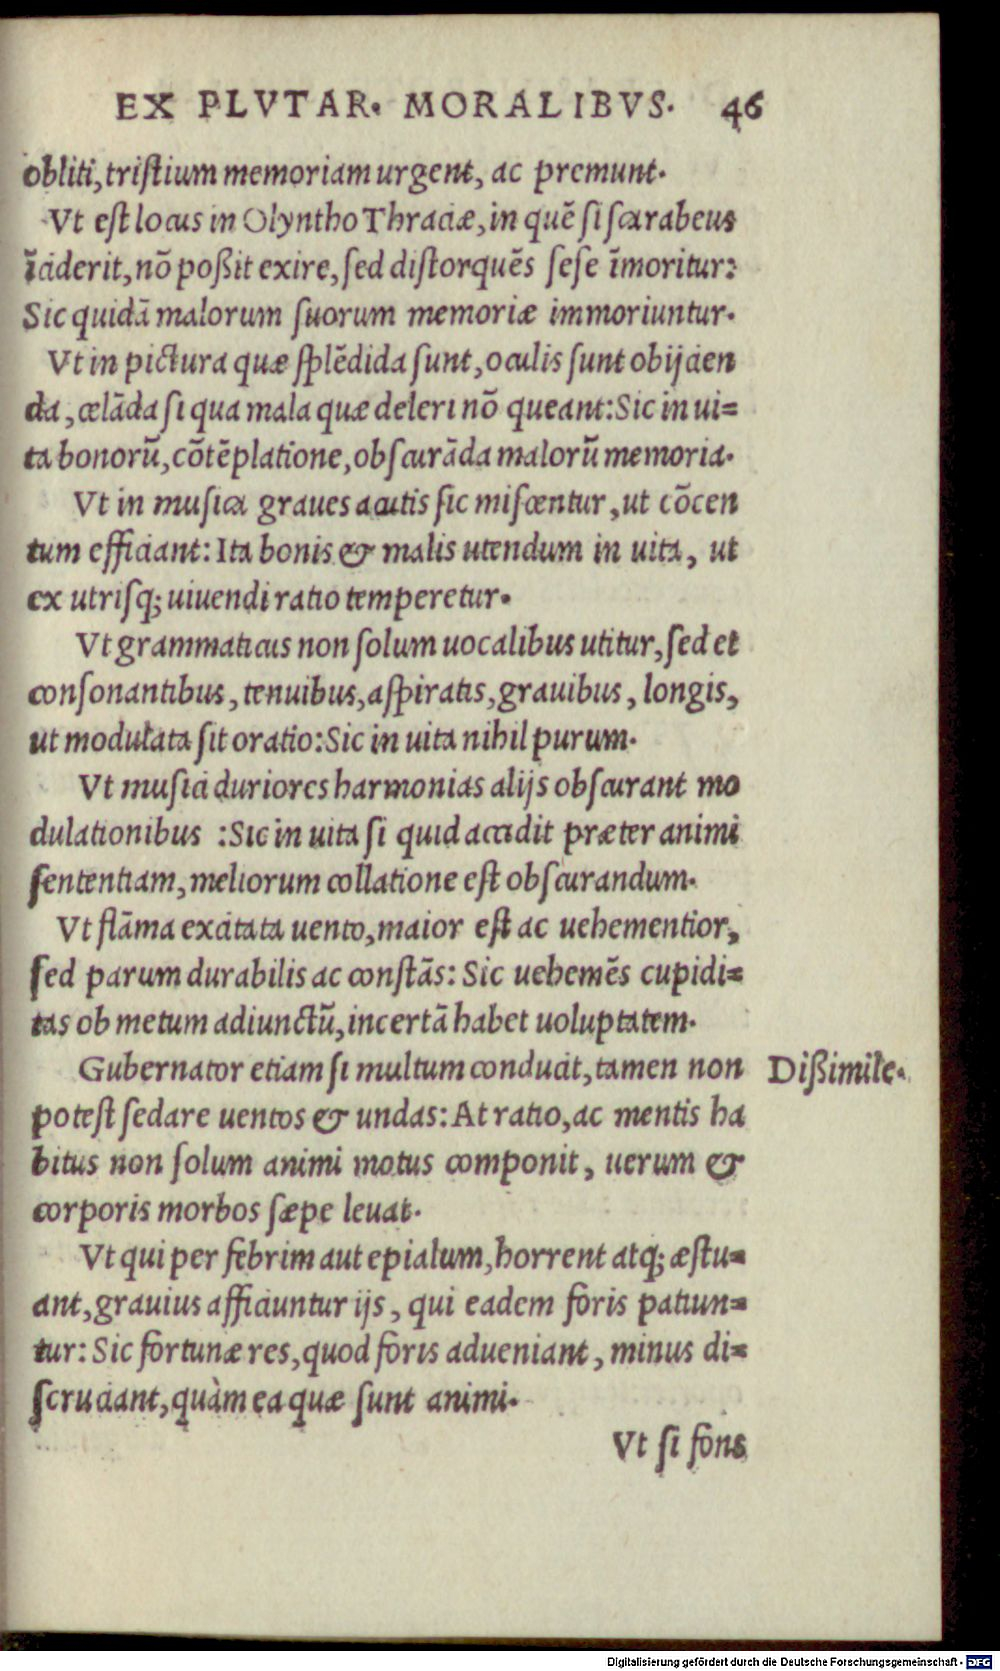 EX PLVTAR. MORALIBVS. 46
obliti, tristium memoriam urgent, ac premunt.
Vt est locus in Olyntho Thraciæ, in quē si scarabeus
īciderit, nō poßit exire, sed distorquēs sese īmoritur:
Sic quidā malorum suorum memoriæ immoriuntur.
Vt in pictura quæ splēdida sunt, oculis sunt obijcien
da, celāda si qua mala quæ deleri nō queant: Sic in ui=
ta bonorū, cōtēplatione, obscurāda malorū memoria.
Vt in musica graues acutis sic miscentur, ut cōcen
tum efficiant: Ita bonis & malis utendum in uita, ut
ex utrisq; uiuendi ratio temperetur.
Vt grammaticus non solum uocalibus utitur, sed et
consonantibus, tenuibus, aspiratis, grauibus, longis,
ut modulata sit oratio: Sic in uita nihil purum.
Vt musici duriores harmonias alijs obscurant mo
dulationibus : Sic in uita si quid accidit præter animi
sententiam, meliorum collatione est obscurandum.
Vt flāma excitata uento, maior est ac uehementior,
sed parum durabilis ac constās: Sic uehemēs cupidi=
tas ob metum adiunctū, incertā habet uoluptatem.
Gubernator etiam si multum conducit, tamen non
Dißimile.
potest sedare uentos & undas: At ratio, ac mentis ha
bitus non solum animi motus componit, uerum &
corporis morbos sæpe leuat.
Vt qui per febrim aut epialum, horrent atq; æstu=
ant, grauius afficiuntur ijs, qui eadem foris patiun=
tur: Sic fortunæ res, quod foris adueniant, minus di=
scruciant, quàm ea quæ sunt animi.
Vt si fons
Digitalisierung gefördert durch die Deutsche Forschungsgemeinschaft - DFG